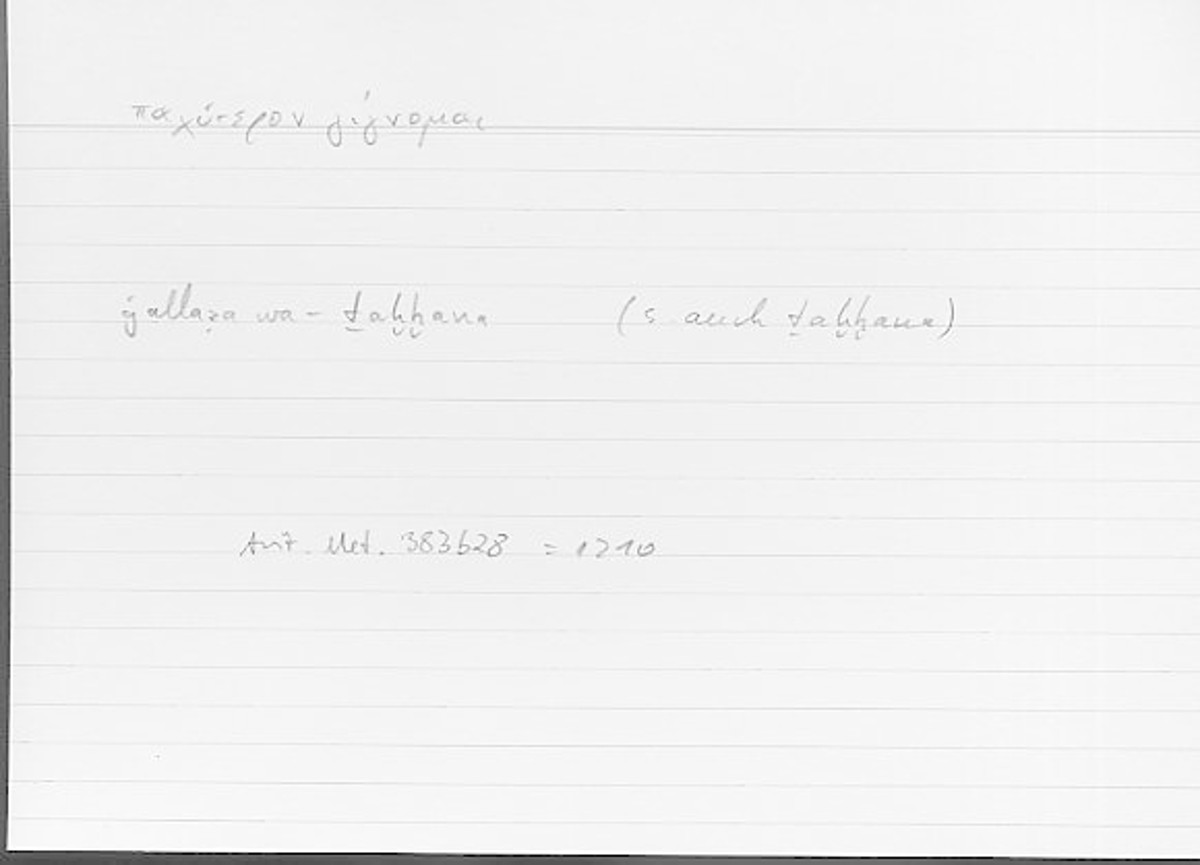 παχύτερον γίγνομαι
ġallaẓa wa-ṯaḫḫana (s auch ṯaḫḫana)
Arist. Met. 383b28 = 1210